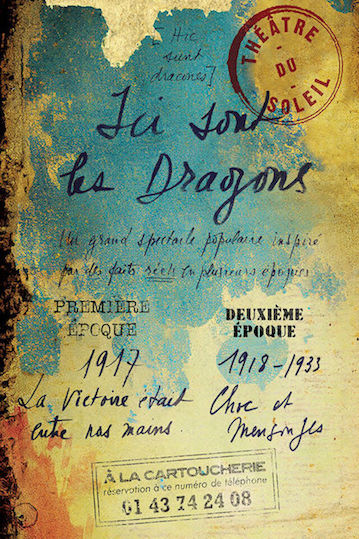 [Hic
sunt
dracones]
THÉÂTRE
DU
SOLEIL
Ici sont
les Dragons
Un grand spectacle populaire inspiré
par des faits réels en plusieurs époques
PREMIÈRE
ÉPOQUE
1917
La Victoire était
entre nos mains
DEUXIÈME
ÉPOQUE
1918-1933
Choc et
Mensonges
À LA CARTOUCHERIE
réservation à ce numéro de téléphone
01 43 74 24 08